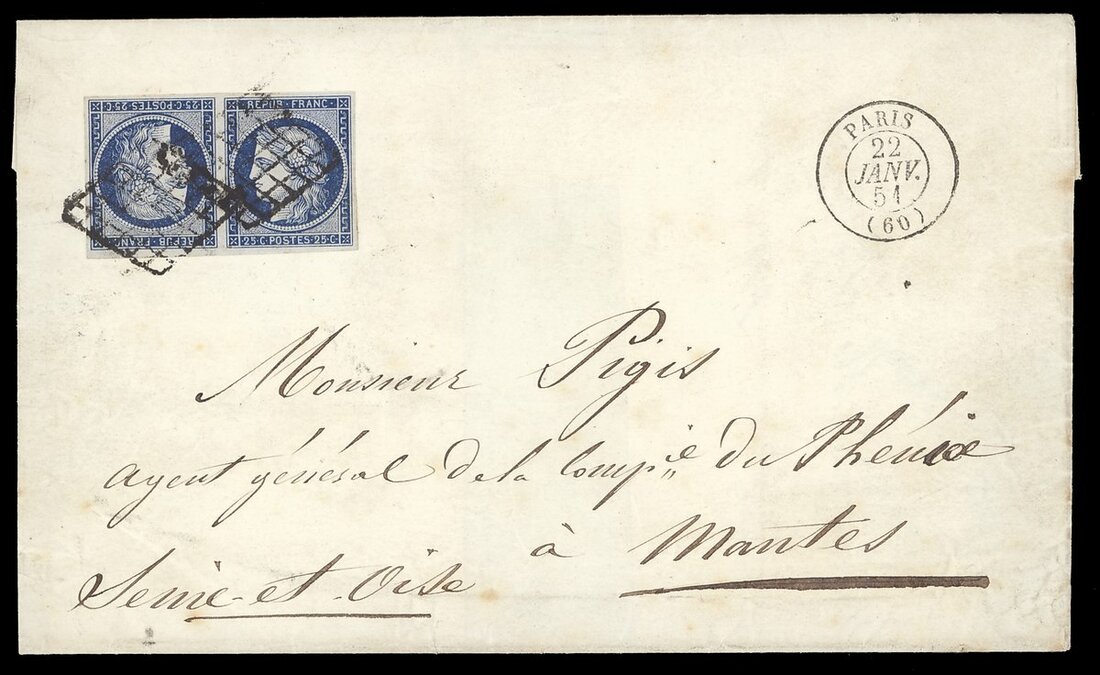 25·C·POSTES·25·C
REPUB·FRANC
REPUB·FRANC
25·C·POSTES·25·C
PARIS
22
JANV.
51
(60)
Monsieur Pigis
agent général de la Comp.ie du Phénix
à Mantes
Seine-et-Oise